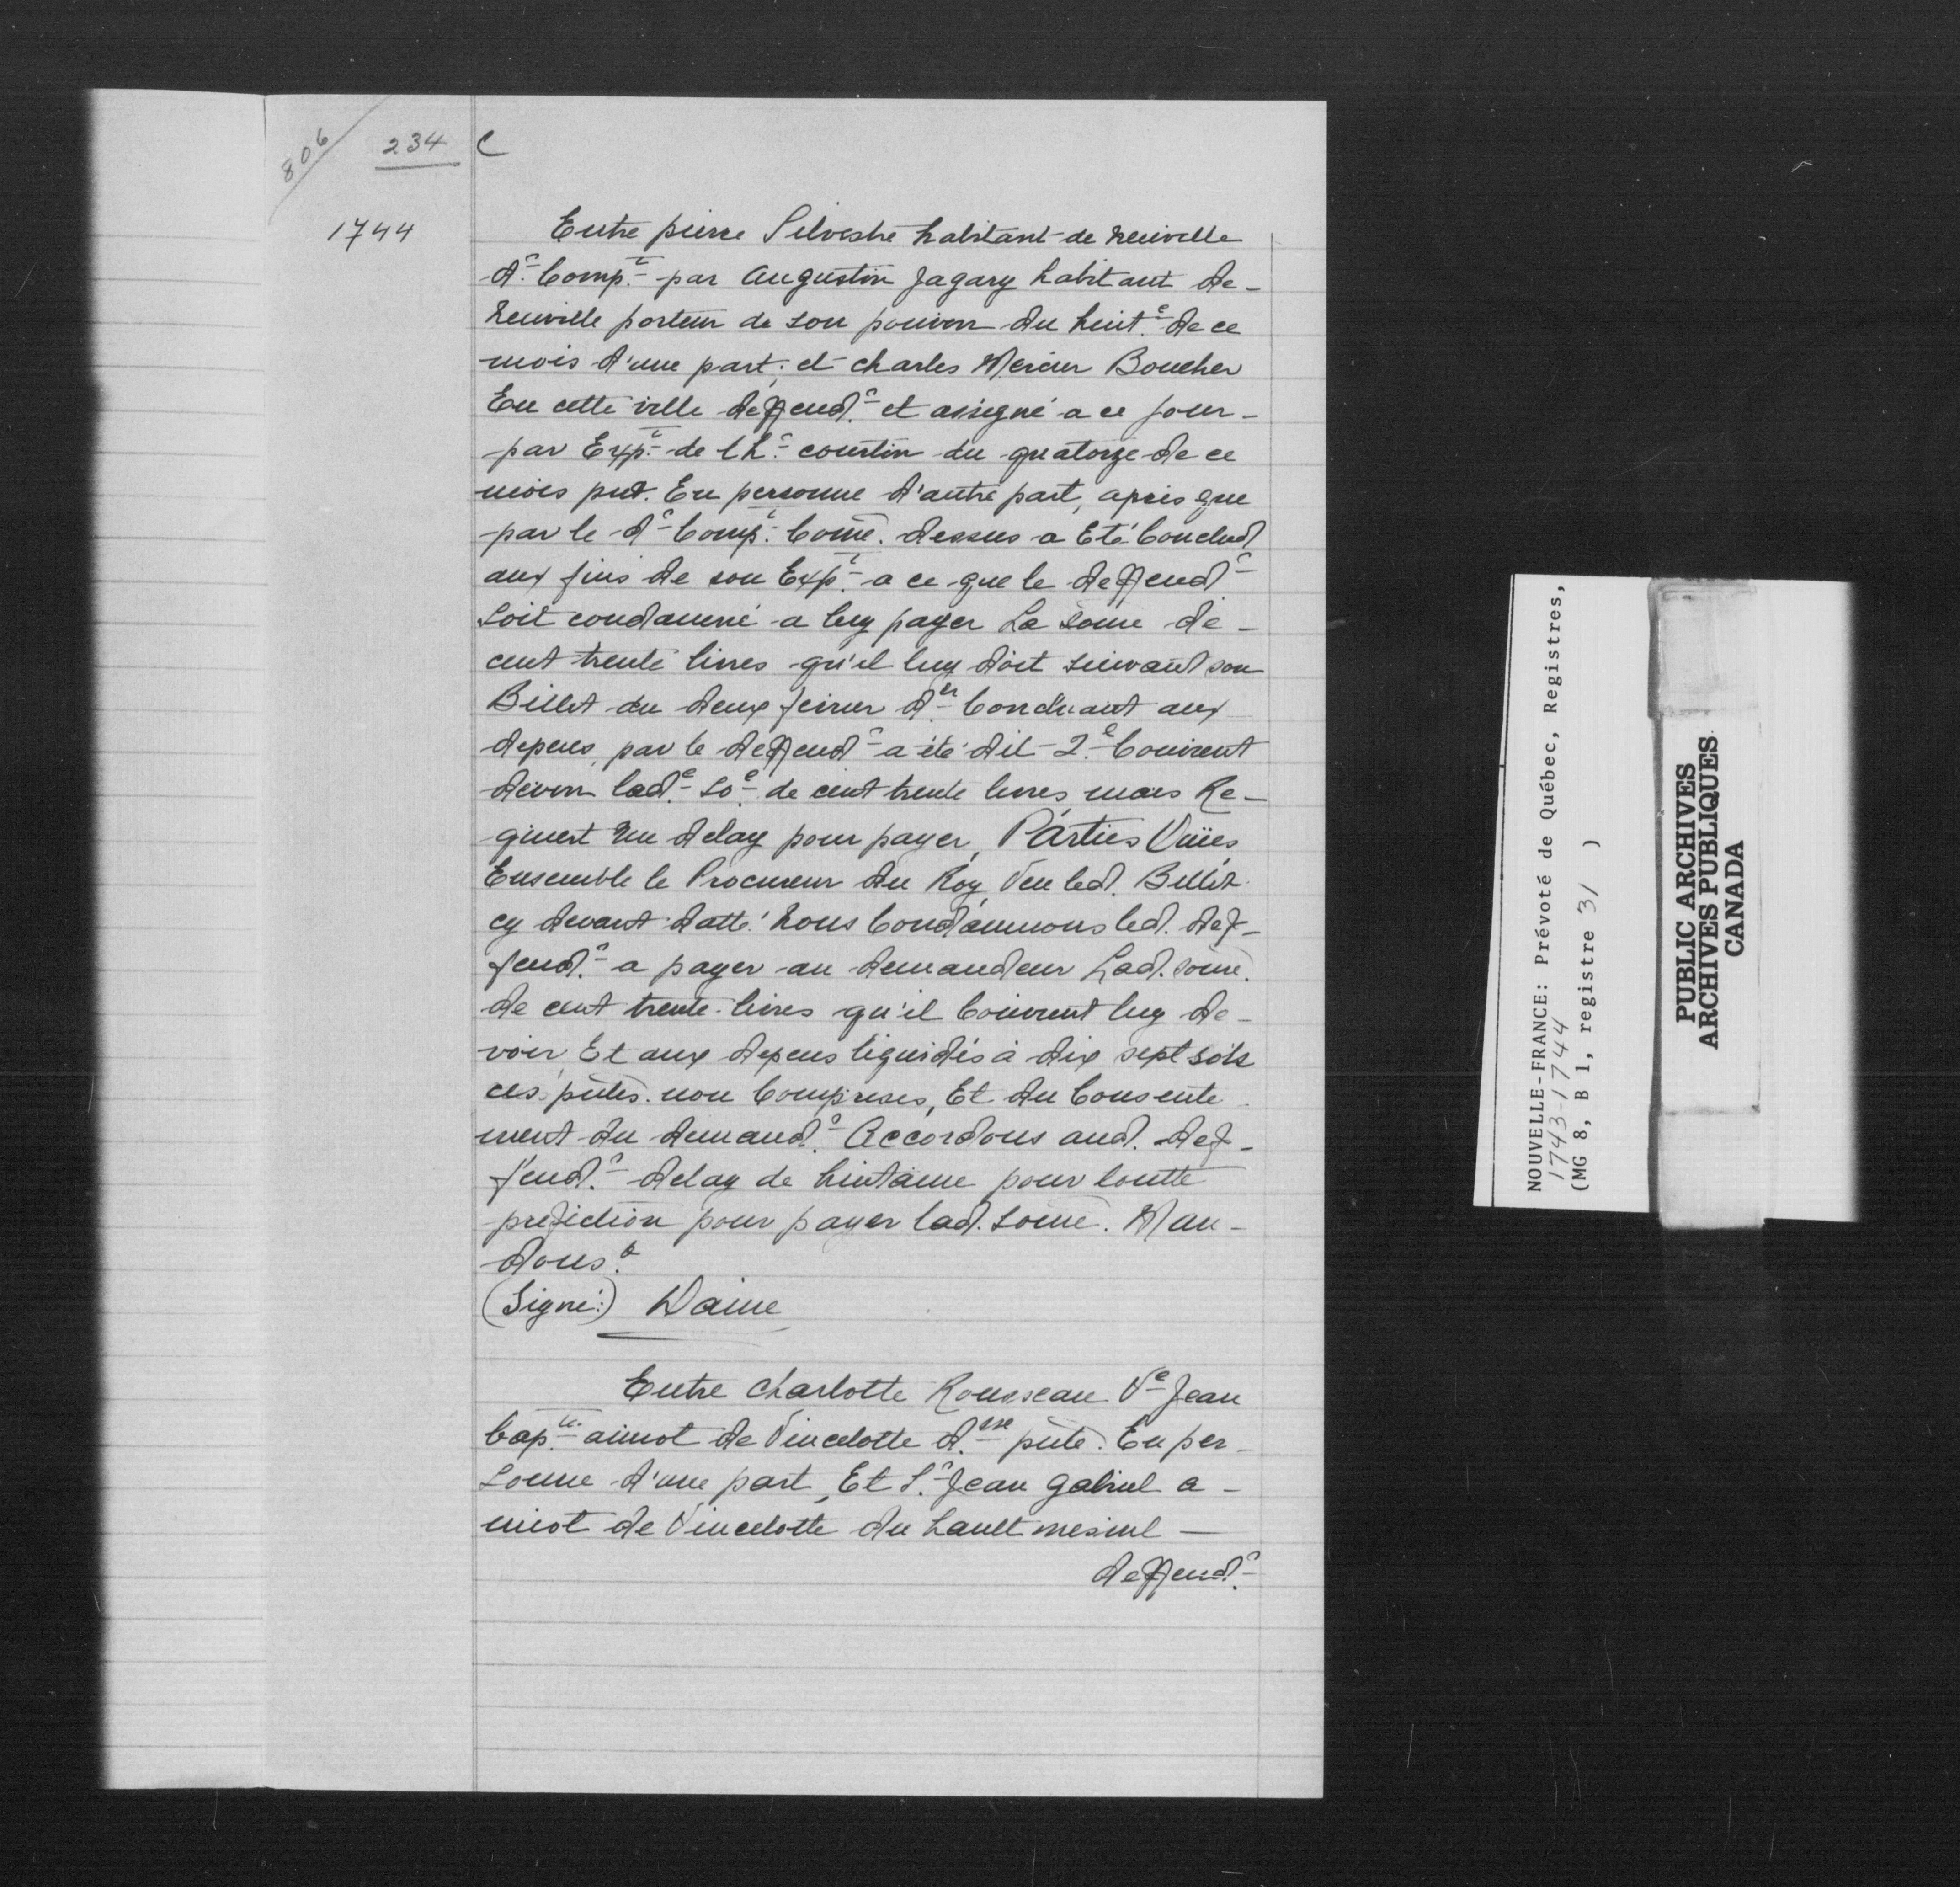 806
234
C
1744
Entre pierre Silvestre habitant de neuville
d.r Comp.t par Augustin Jagary habitant de-
neuville porteur de son pouvoir du huit.e de ce
mois d'une part; et charles Mercier Boucher
En cette ville deffend.r et assigné a ce jour-
par Exp.t de l'h.r courtin du quatorze de ce
mois put. En personne d'autre part, apris que
par le d.r Comp.t Come. dessus a Eté Conclud
aux fins de son Exp.t a ce que le deffend.r
soit condamné a luy payer La some de-
cent trente livres qu'il luy doit suivant son
Billet du deux fevrier d.er Concluant aux
depens, par le deffend.r a été dit q.l Convient
devoir lad.e so.e de cent trente livres mais Re-
quiert un delay pour payer, Parties Ouïes
Ensemble le Procureur du Roy, Veu led. Billet
cy devant datté. Nous Condamnons led. def-
fend.r a payer au demandeur Lad. some.
de cent trente livres qu'il Convient luy de-
voir, Et aux depens liquidés à dix sept sols
ces putes. non Comprises, Et du Consente
ment du demand.r Accordons aud. def-
fend.r delay de huitaine pour toutte
prefiction pour payer lad. some. Man-
dons.&
(Signé:) Daine
Entre charlotte Rousseau V.e Jean
bap.te amiot de Vincelotte d.sse pute. En per-
sonne d'une part, Et S.r Jean gabriel a-
miot de Vincelotte du hault mesnil —
deffend.r
NOUVELLE-FRANCE: Prévoté de Québec, Registres,
1743-1744
(MG 8, B 1, registre 31 )
PUBLIC ARCHIVES
ARCHIVES PUBLIQUES
CANADA